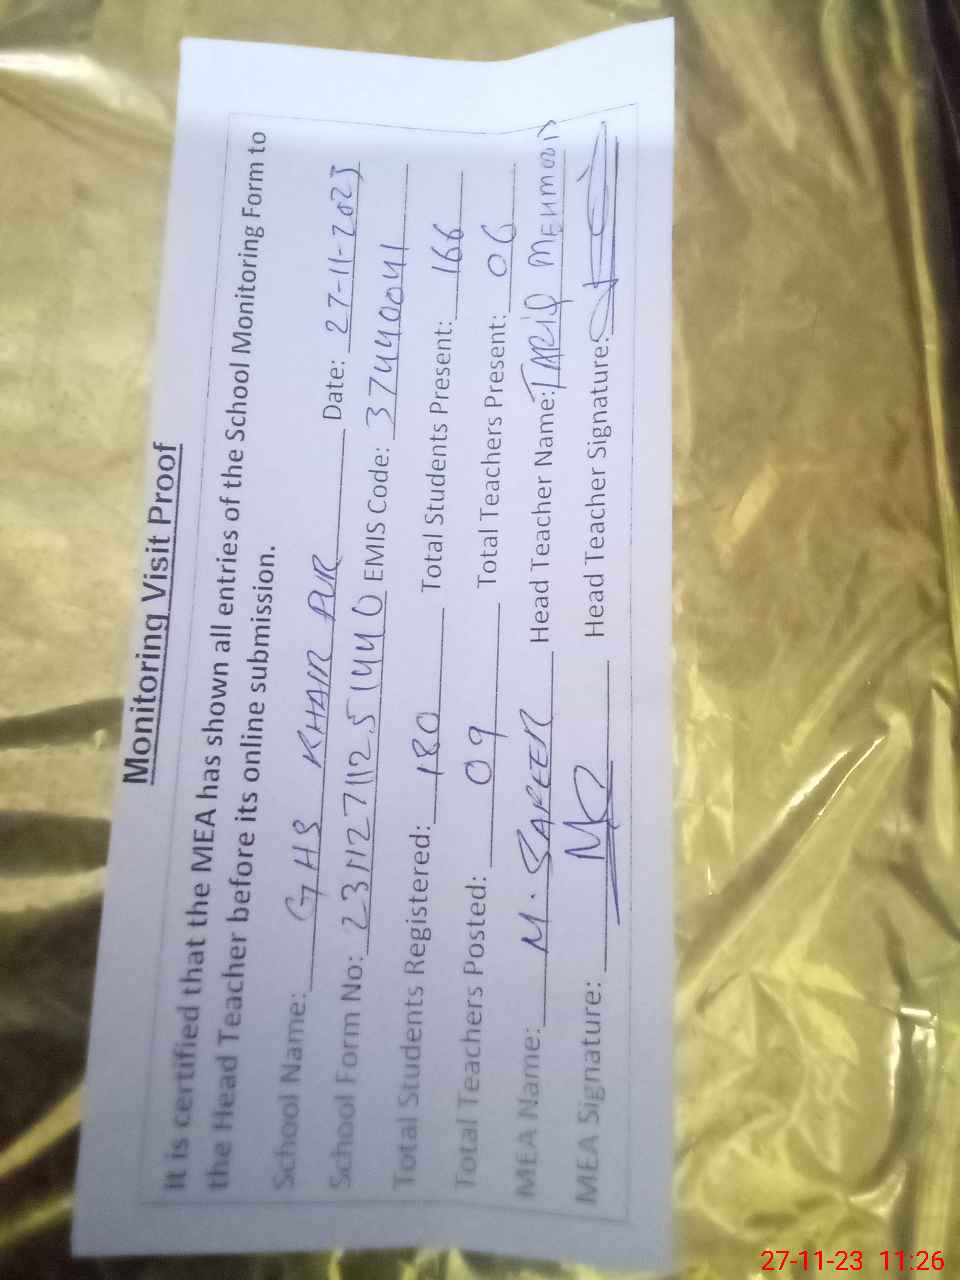 Monitoring Visit Proof
It is certified that the MEA has shown all entries of the School Monitoring Form to
the Head Teacher before its online submission.
School Name: GHS KHAIR PUR Date: 27-11-2023
School Form No: 23112711251440 EMIS Code: 37440041
Total Students Registered: 180 Total Students Present: 166
Total Teachers Posted: 09 Total Teachers Present: 06
MEA Name: M. Head Teacher Name: TARIQ MEHMOOD
MEA Signature: Head Teacher Signature:
27-11-23 11:26